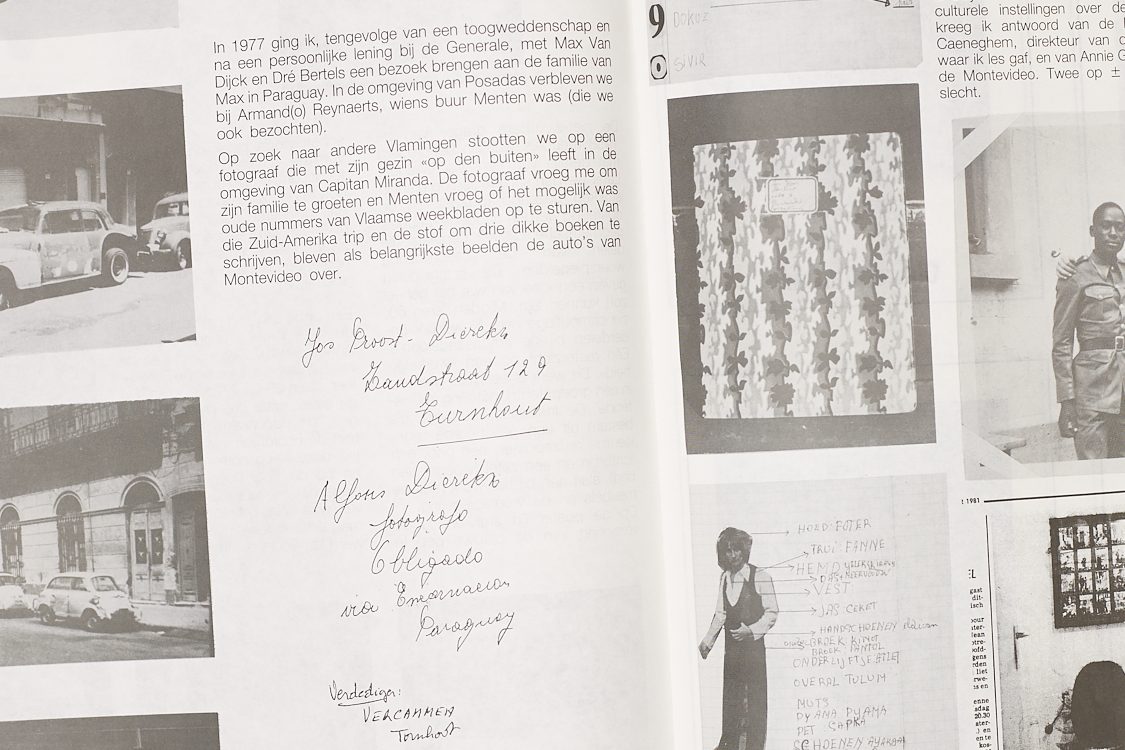 In 1977 ging ik, tengevolge van een toogweddenschap en
na een persoonlijke lening bij de Generale, met Max Van
Dijck en Dré Bertels een bezoek brengen aan de familie van
Max in Paraguay. In de omgeving van Posadas verbleven we
bij Armand(o) Reynaerts, wiens buur Menten was (die we
ook bezochten).
Op zoek naar andere Vlamingen stootten we op een
fotograaf die met zijn gezin «op den buiten» leeft in de
omgeving van Capitan Miranda. De fotograaf vroeg me om
zijn familie te groeten en Menten vroeg of het mogelijk was
oude nummers van Vlaamse weekbladen op te sturen. Van
die Zuid-Amerika trip en de stof om drie dikke boeken te
schrijven, bleven als belangrijkste beelden de auto's van
Montevideo over.
Jos Proost - Dierckx
Zandstraat 129
Turnhout
Alfons Dierckx
fotografo
Obligado
via Encarnacion
Paraguay
Verdediger:
VERCAMMEN
Tornhout
9
DOKUZ
SIVIR
culturele instellingen over de
kreeg ik antwoord van de
Caeneghem, direkteur van
waar ik les gaf, en van Annie G
de Montevideo. Twee op ±
slecht.
HOED FÖTER
TRUI FANNE
HEMD
VEST
JAS CEKET
HANDSCHOENEN
BROEK
BROEK PANTOL
OVERAL TULUM
MUTS
PYAMA PYAMA
PET SAPKA
SCHOENEN AYAKABI
1981
EL
gast
dit-
isch
pour
ster-
lean
otre-
ofd-
gens
rden
liet
rwe-
is en
enne
sdag
20.30
ster-
.) en
en te
kos-